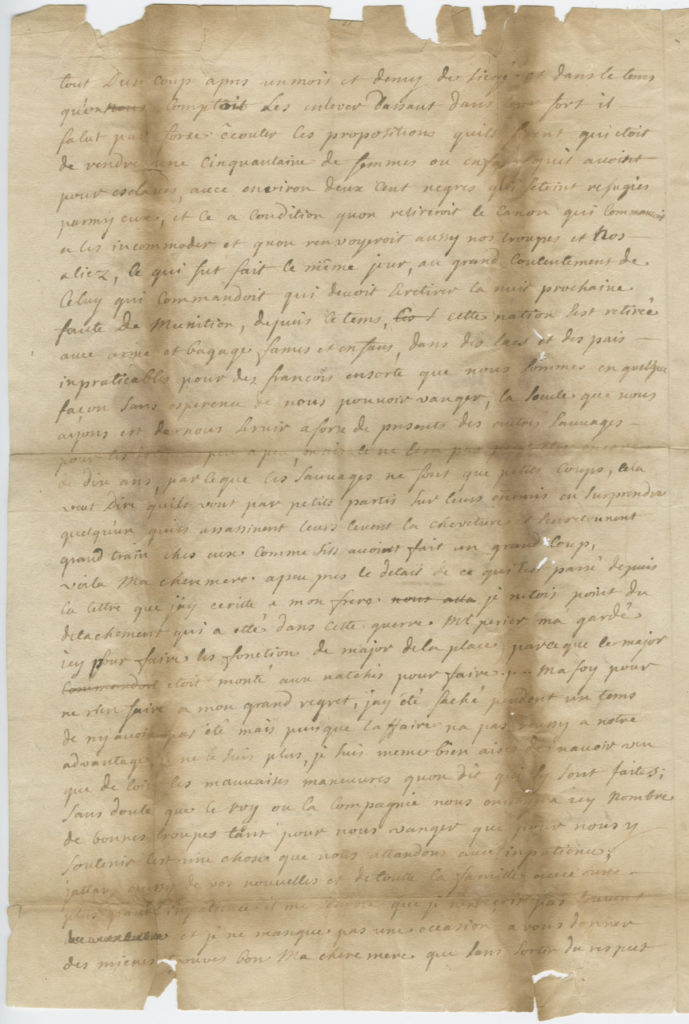 tout Dun coup apres un mois et demy de siege et dans le tems
qu'on nous comptoit Les enlever Dassaut dans leur fort il
falut par force écouter les propositions quils firent qui etoit
de rendre une cinquantaine de femmes ou enfans quil avoint
pour esclaves, avec environ deux Cent negres qui setoint refugies
parmy eux, et ce a Condition quon retireroit le Canon qui Commancoit
a les incommoder et quon renvoyeroit aussy nos troupes et Nos
aliez, ce qui fut fait le même jour, au grand Contentement de
Celuy qui Commandoit qui devoit se retirer la nuit prochaine
faute de Munition, depuis ce tems, cette nation sest retirée
avec arme et bagage fames et enfans, dans des lacs et des païs
inpraticables pour des françois ensorte que nous sommes en quelque
façon sans esperence de nous pouvoir vanger, la seule que nous
ayons est de nous servir a force de presents des autres Sauvages
pour les peu a peu, mais ce ne sera pas
de dix ans, parceque ces Sauvages ne font que petits Coups, cela
veut Dire quils vont par petits partis sur leurs ennemis en surprendre
quelqu'un quils assassinent leurs levent la chevelure et sen retournent
grand train ches eux comme sils avoint fait un grand Coup,
voila Ma chere mere apeu pres le detail de ce qui sest passé depuis
la lettre que j'ay ecritte a mon frere nous je netois point du
detachement qui a etté dans cette guerre Mr perier ma gardé
icy pour faire les fonction de major de la place parceque le major
Commandant etoit monté aux natchés pour faire Ma foy pour
ne rien faire a mon grand regret, jay été faché pendent un tems
de ny avoir pas été mais puisque laffaire na pas reussy a notre
advantage je ne le suis plus, je suis meme bien aise de navoir veu
que de loin les mauvaises maneuvres quon dit qui sy sont faites;
sans doute que le roy ou la Compagnie nous envoyera icy Nombre
de bonnes troupes tant pour nous vanger que pour nous y
soutenir cest une chose que nous attendons avec inpatience,
jattans aussy de vos nouvelles et de toute la famille avec encore
plus grand inpatience il me que je nen reçoir pas souvent
et je ne manque pas une occasion a vous donner
des mienes trouves bon Ma chere mere que sans sortir du respect